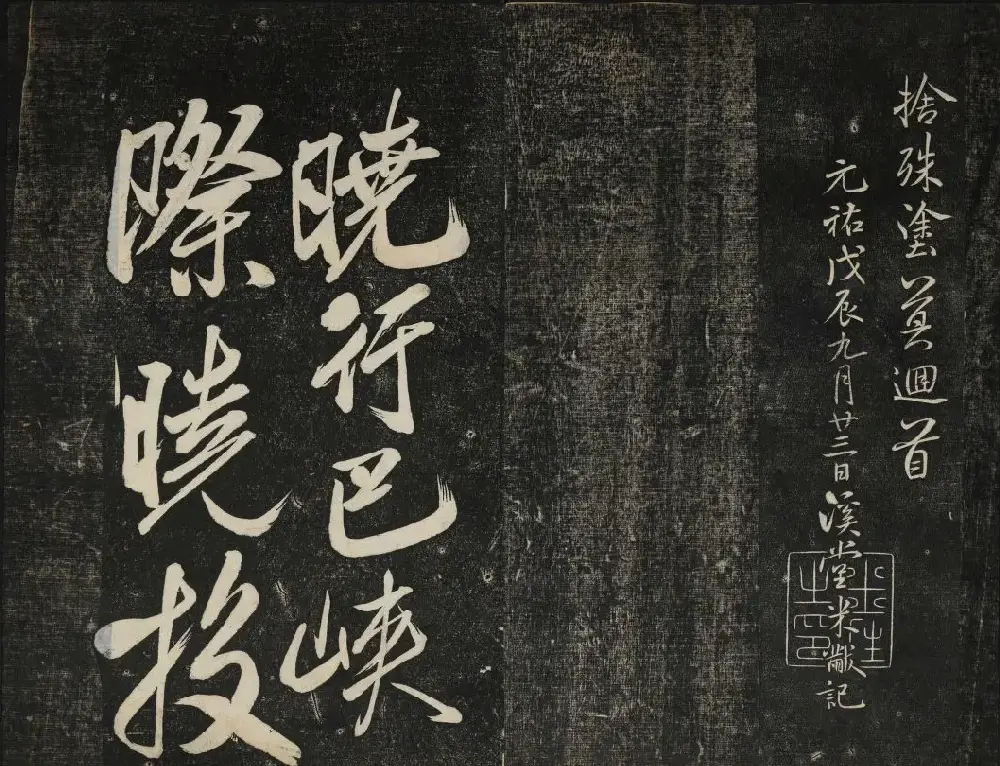 捨殊塗莫迴首
元祐戊辰九月廿三日溪堂米黻記
曉行巴峽
際曉投